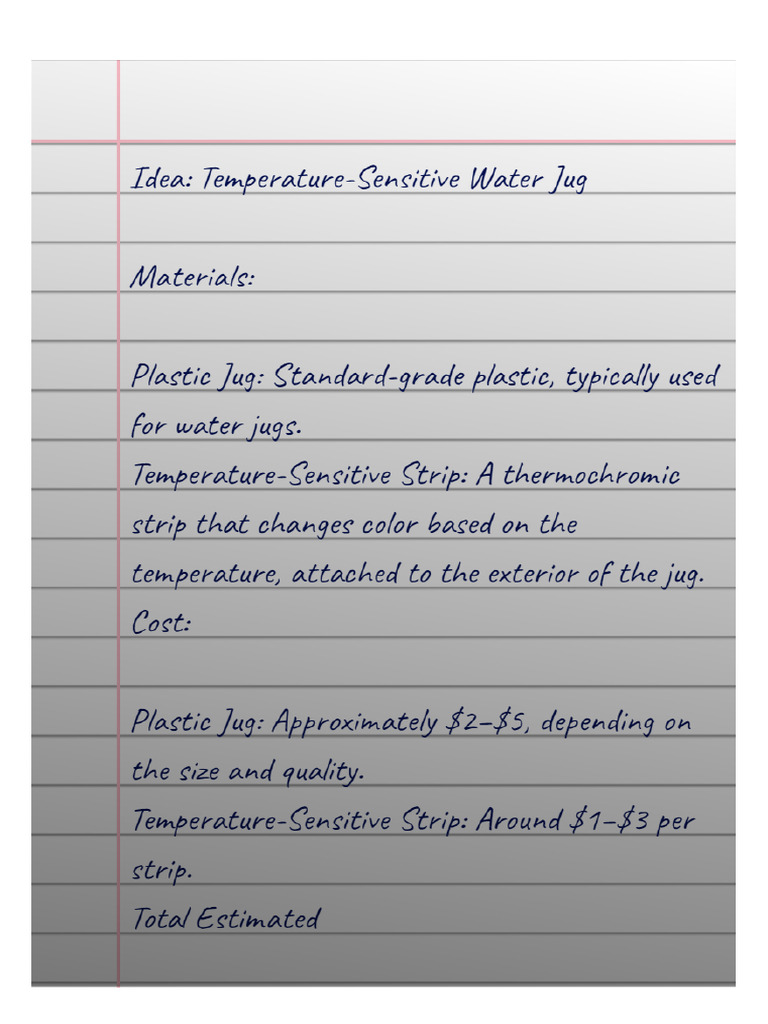 Idea: Temperature-Sensitive Water Jug
Materials:
Plastic Jug: Standard-grade plastic, typically used
for water jugs.
Temperature-Sensitive Strip: A thermochromic
strip that changes color based on the
temperature, attached to the exterior of the jug.
Cost:
Plastic Jug: Approximately $2–$5, depending on
the size and quality.
Temperature-Sensitive Strip: Around $1–$3 per
strip.
Total Estimated